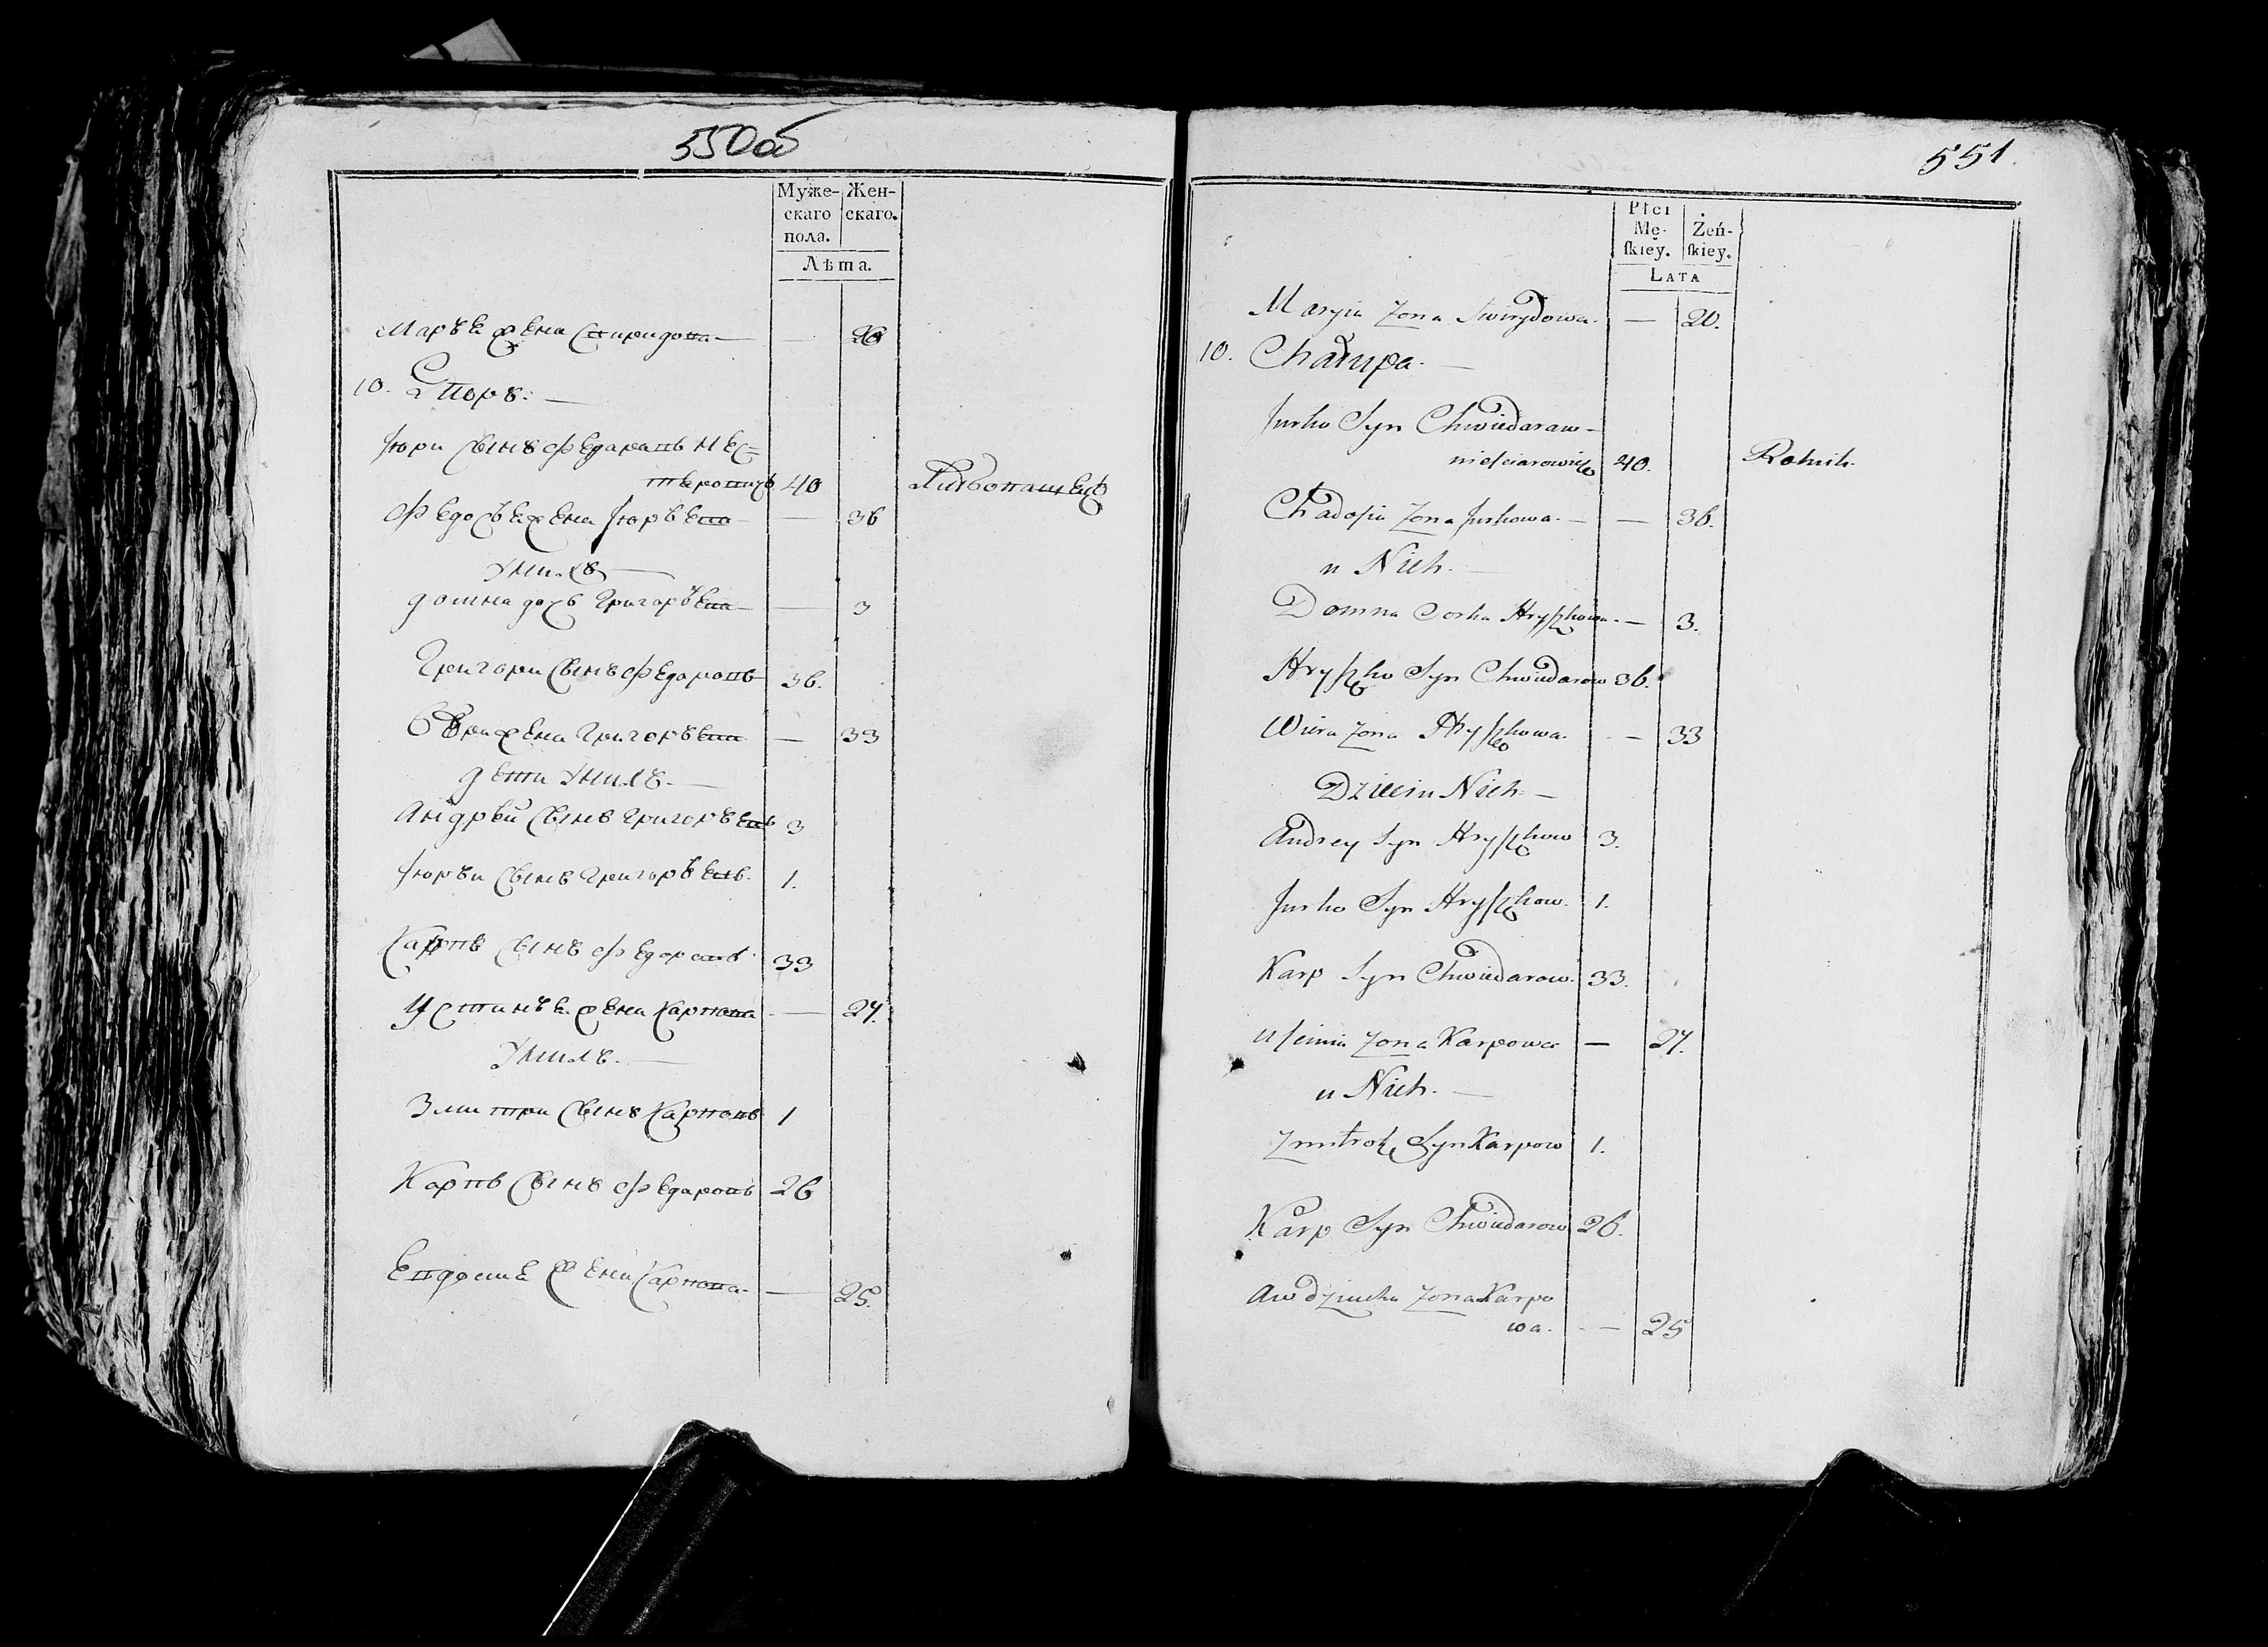 550об
Муже- Жен-
скаго скаго.
пола.
Лѣта.
Маръя жена Спиридона — — 20
10. Дворъ. —
Юри Сынъ Федаравъ Нес=
теровичъ 40
Федосья жена Юрьева — — 36
У нихъ —
Домна дочь Григорьева — — 3
Григори Сынъ Федаровъ 36.
жена Григорьева — 33
дети У нихъ. —
Андрей Сынъ Григорьевъ 3
Юрьи Сынъ Григорьевъ. 1.
Карпъ Сынъ Федоровъ 33
Устинья жена Карпова — 27.
У нихъ. —
Змитри Сынъ Карповъ 1
Карпъ Сынъ Федаровъ 26
жена Карпова — 25.
551.
Płci
Mę- Żeń-
ſkiey. ſkiey.
Lata
Maryia Zona Swirydowa. — 20.
10. Chałupa. —
Jurko Syn Chwiedaraw—
niesciarowicz 40. Rolnik.
Chadosia Zona Jurkowa. — — 36.
u Nich. —
Domna Corka Hryszkowa. — 3.
Hryszko Syn Chwiedarow 36.
Wiera Zona Hryszkowa. — 33
Dzieci u Nich —
Andrey Syn Hryszkow 3.
Jurko Syn Hryszkow. 1.
Karp Syn Chwiedarow. 33.
Uscinia Zona Karpowa — 27.
u Nich. —
Zmitrok Syn Karpow 1.
Karp Syn Chwiedarow 26.
Awdziucha Zona Karpo
wa. — 25